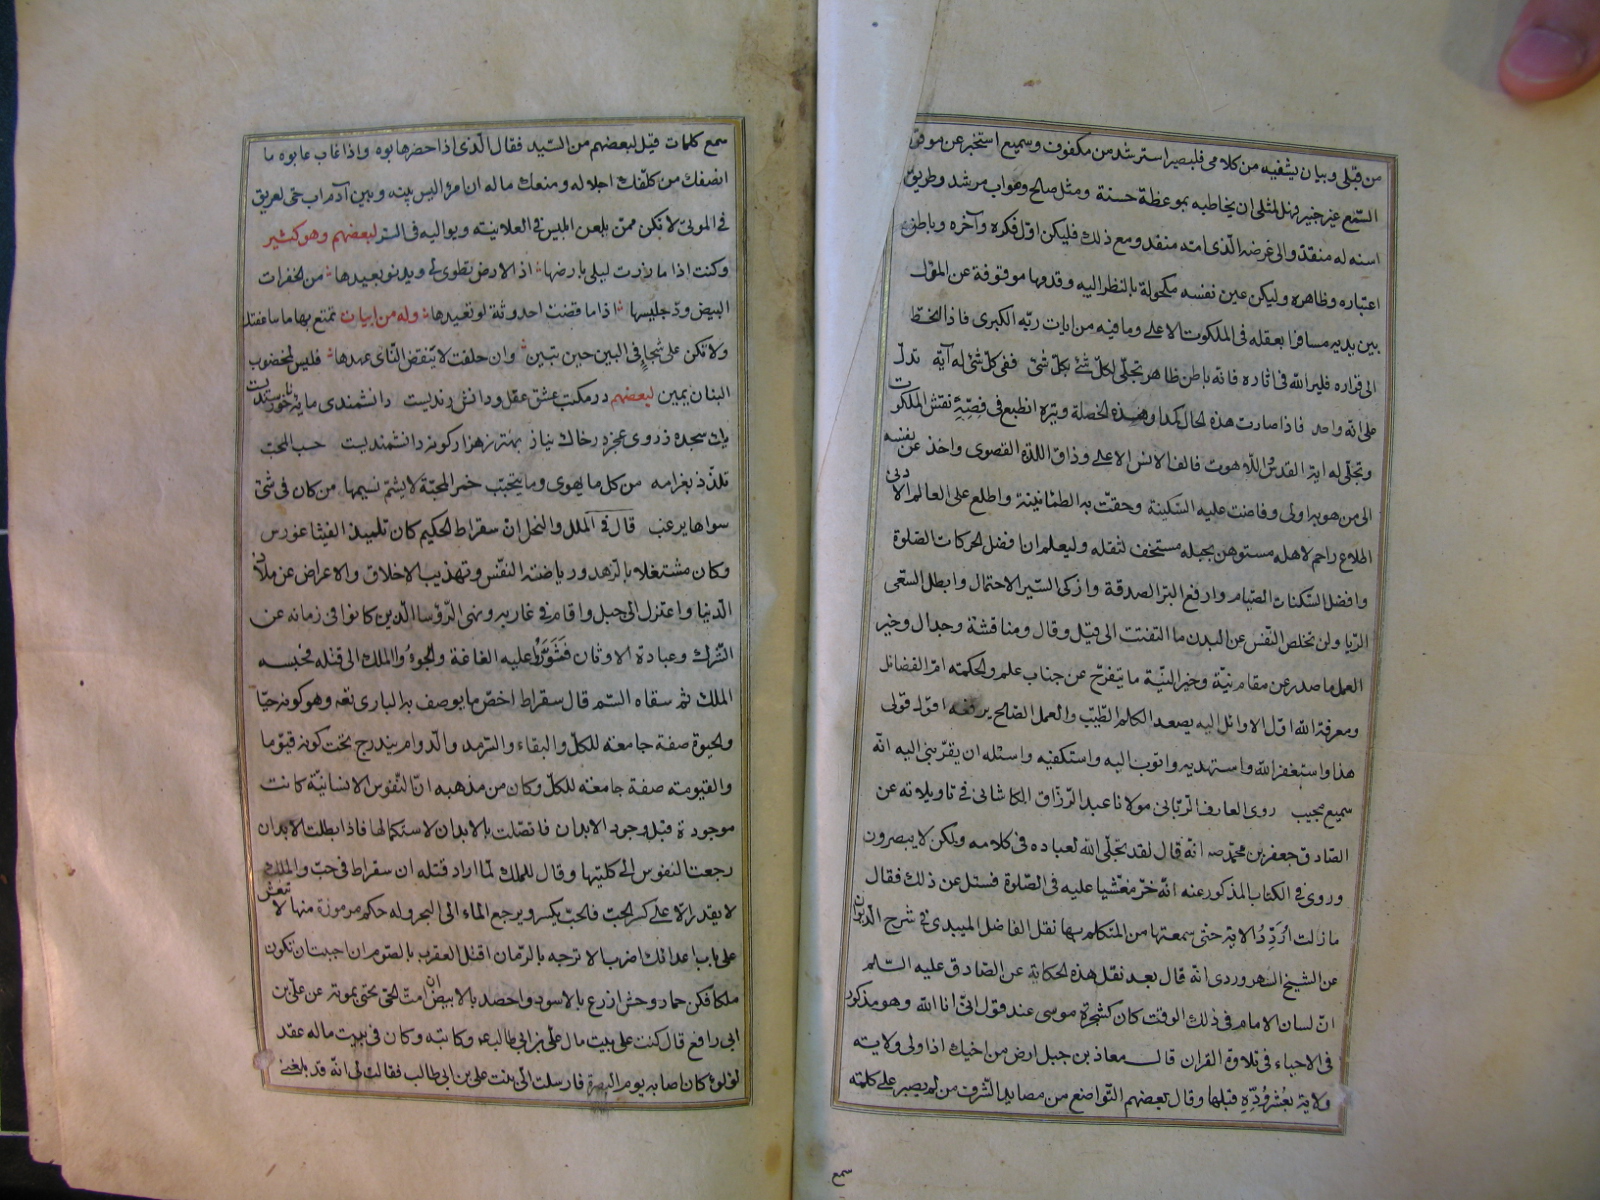 من قبلى وبيان يشفيه من كلامى فلبصير استرشد من مكفوف وسميع استخبر عن موقر
السمع غير خبير وهل لمثلى ان يخاطبه بموعظة حسنة ومثل صالح وصواب مرشد وطريق
اسنه له منقذ والى غرضه الذى امه منقذ ومع ذلك فليكن اول فكره وآخره وباطن
اعتباره وظاهره وليكن عين نفسه مكحولة بالنظر اليه وقدمها موقوفة عن المثول
بين يديه مسافرا بعقله فى الملكوت الاعلى وما فيه من ايات ربه الكبرى فاذا انحط
الى قراره فلير الله فى اثاره فانه باطن ظاهر تجلى لكل شئ بكل شئ ففى كل شئ له آية تدل
على انه واحد فاذا صارت هذه الحال ملكا وهذه الخصلة وتيرة انطبع فى فصه نقش الملكوت
وتجلى له اية القدس واللاهوت فالف الانس الاعلى وذاق اللذة القصوى واخذ عن نفسه
الى من هو به اولى وفاضت عليه السكينة وحفت به الطمانينة واطلع على العالم الادنى
اطلاع راحم لاهله مستوهن بحبله مستخف لثقله وليعلم ان افضل الحركات الصلوة
وافضل السكنات الصيام وارفع البر الصدقة وازكى السير الاحتمال وابطل السعى
الريا ولن تخلص النفس عن البدن ما التفتت الى قيل وقال ومناقشة وجدال وخير
العمل ما صدر عن مقام نية وخير النية ما ينفرج عن جناب علم والحكمة ام الفضائل
ومعرفة الله اول الاوائل اليه يصعد الكلم الطيب والعمل الصالح يرفعه اقول قولى
هذا واستغفر الله واستهديه واتوب اليه واستكفيه واسئله ان يقربنى اليه انه
سميع مجيب روى العارف الربانى مولانا عبد الرزاق الكاشانى فى تاويلاته عن
الصادق جعفر بن محمد انه قال لقد تجلى الله لعباده فى كلامه ولكن لا يبصرون
وروى فى الكتاب المذكور عنه انه خر مغشيا عليه فى الصلوة فسئل عن ذلك فقال
ما زلت اردد الاية حتى سمعتها من المتكلم بها نقل الفاضل الميبدى فى شرح الديوان
عن الشيخ السهروردى انه قال بعد نقل هذه الحكاية عن الصادق عليه السلم
ان لسان الامام فى ذلك الوقت كان كشجرة موسى عند قول انى انا الله وهو مذكور
فى الاحياء فى تلاوة القران قال معاذ بن جبل ارض من اخيك اذا ولى ولاية
ولاية بعشر وده قبلها وقال بعضهم التواضع من مصايد الشرف من لم يصبر على كلمة
سمع
سمع كلمات قيل لبعضهم من السيد فقال الذى اذا حضر هابوه واذا غاب عابوه ما
انصفك من كلفك اجلاله ومنعك ماله ان امرؤا ليس بينه وبين آدم اب حى لعريق
فى الموتى لا تكن ممن يلعن ابليس فى العلانية ويواليه فى السر لبعضهم وهو كثير
وكنت اذا ما زرت ليلى بارضها اذ الارض تطوى لى ويدنو بعيدها من الخفرات
البيض ود جليسها اذا ما قضت احدوثة لو تعيدها وله من ابيات تمتع بها ما ساعفتك
ولا تكن على شجا فى البين حين تبين وان حلفت لا ينقض النأى عهدها فليس لمخضوب
البنان يمين لبعضهم در مكتب عشق عقل ودانش رنديست دانشمندى مايه خودپسنديست
يك سجده ز روى عجز در خاك نياز بهتر ز هزار كونه دانشمنديست حسب المحب
تلذذ بغرامه من كل ما يهوى وما يتحبب خمر المحبة لا يشم نسيمها من كان فى شئ
سواها يرغب قال فى الملل والنحل ان سقراط الحكيم كان تلميذ الفيثاغورس
وكان مشتغلا بالزهد ورياضة النفس وتهذيب الاخلاق والاعراض عن ملاذ
الدنيا واعتزل الى جبل واقام فى غار به ونهى الرؤسا الذين كانوا فى زمانه عن
الشرك وعبادة الاوثان فثوروا عليه الغاغة والجؤا الملك الى قتله فحبسه
الملك ثم سقاه السم قال سقراط اخص ما يوصف به البارى تعه وهو كونه حيا
والحيوة صفة جامعة للكل والبقاء والسرمد والدوام يندرج تحت كونه قيوما
والقيومة صفة جامعة للكل وكان من مذهبه ان النفوس الانسانية كانت
موجودة قبل وجود الابدان فاتصلت بالابدان لاستكمالها فاذا بطلت الابدان
رجعت النفوس الى كليتها وقال للملك لما اراد قتله ان سقراط فى حب والملك
لا يقدر الا على كسر الحب فالحب يكسر ويرجع الماء الى البحر وله حكم مرموزة منها لا تنعس
على باب اعدائك اضرب الاترجه بالرمان اقتل العقرب بالصوم ان احببت ان تكون
ملكا فكن حمار وحش ازرع بالاسود واحصد بالابيض امت الحى تحيى بموته عن على بن
ابى رافع قال كنت على بيت مال على بن ابى طالب وكاتبه وكان فى بيت ماله عقد
لؤلؤ كان اصابه يوم البصرة فارسلت الى بنت على بن ابى طالب فقالت لى انه قد بلغنى